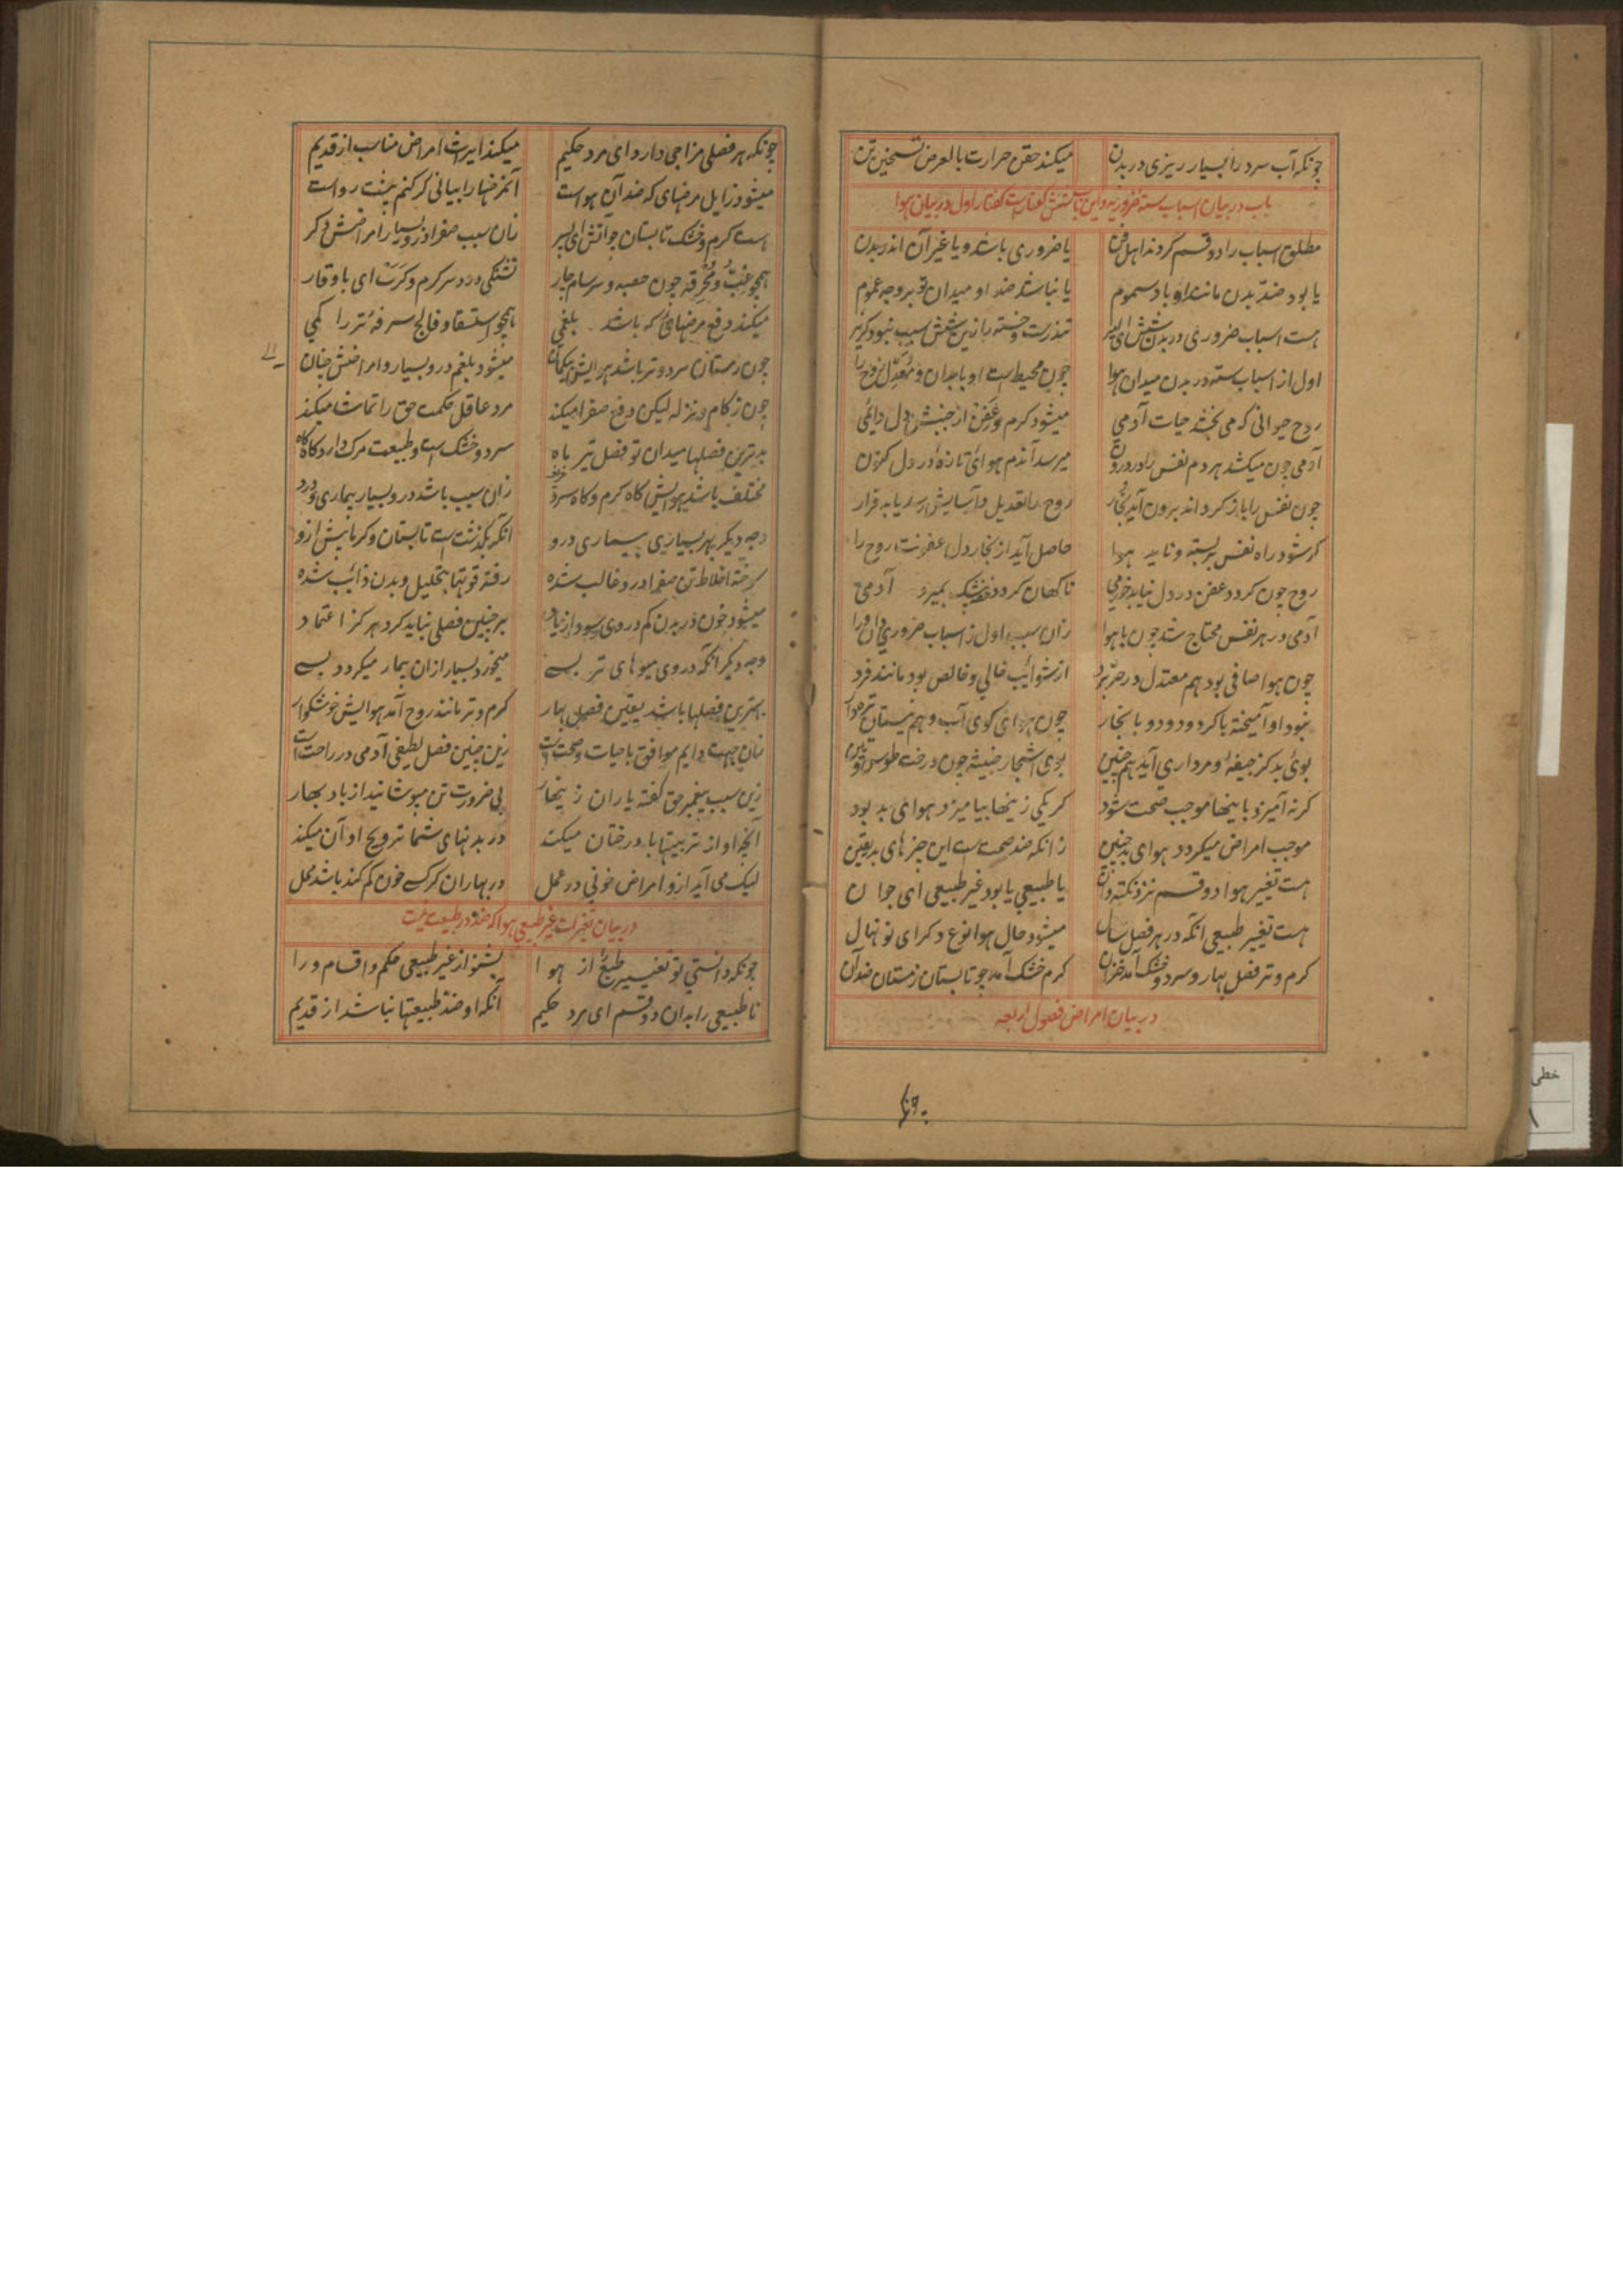 چونکه آب سرد را بسیار ریزی در بدن میکند حقن حرارت بالعرض تسخین تن
باب در بیان اسباب سته ضروریه و این باب شش گفتار است گفتار اول در بیان هوا
مطلق اسباب را دو قسم کردند اهل فن یا ضروری باشد و یا غیر آن اندر بدن
یا بود ضد بدن مانند او باد سموم یا نباشد ضد او میدان تو بر وجه عموم
هست اسباب ضروری در بدن شش ای پسر تندرست و خسته را زین شش سبب نبود کزیر
اول از اسباب سته در بدن میدان هوا چون محیط است او بابدان و معدل روح را
روح حیوانی که می بخشد حیات آدمی میشود کرم و عفن از جنبش دل دایمی
آدمی چون میکشد هر دم نفس را در درون میرسد آندم هوائی تازه در دل کنون
چون نفس را باز کرداند برون آید بخار روح را تعدیل و آسایش رسد یابد قرار
کر شود راه نفس بسته و ناید هوا حاصل آید از بخار دل عفونت روح را
روح چون کردد عفن در دل نیاید خرمی ناکهان کردد بمیرد آدمی
آدمی در هر نفس محتاج شد چون با هوا زان سبب اول ز اسباب ضروری دان ورا
چون هوا صافی بود هم معتدل در حر و برد از شوائب خالی و خالص بود مانند فرد
نبود او آمیخته با کرد و دود و با بخار چون هوای کوی آب و هم نیستان
بوی بد کز جیفه و مرداری آید همچنین بوی اشجار خبیثه چون درخت
کر نه آمیزد باینها موجب صحت شود کر یکی زینها بیامیزد هوای بد بود
موجب امراض میکردد هوای بد چنین زانکه ضد صحت است این چیزهای بد یقین
هست تغییر هوا دو قسم نزد نکته دان یا طبیعی یا بود غیر طبیعی ای جوان
هست تغییر طبیعی آنکه در هر فصل سال میشود حال هوا نوع دکر ای نونهال
کرم و تر فصل بهار و سرد و خشک آمد خزان کرم خشک آمد چو تابستان زمستان ضد آن
در بیان امراض فصول اربعه
چونکه
چونکه هر فصلی مزاجی دارد ای مرد حکیم میکند ایراث امراض مناسب از قدیم
میشود زایل مرضهای که ضد آن هواست آن مرضها را بیانی کر کنم پیشت رواست
است کرم و خشک تابستان چو آتش ای پسر زان سبب صفرا درو بسیار امراضش دکر
همچو غب و محرقه چون حصبه و سرسام حار تشنکی درد سر کرم و کرب ای باوقار
میکند دفع مرضهائی که باشد بلغمی همچو استسقا و فالج سرفه تر را کمی
چون زمستان سرد و تر باشد هوایش بیکمان میشود بلغم درو بسیار و امراضش چنان
چون زکام و نزله لیکن دفع صفرا میکند مرد عاقل حکمت حق را تماشا میکند
بدترین فصلها میدان تو فصل تیر ماه سرد و خشک است و طبیعت مرک دارد کاه کاه
مختلف باشد هوایش کاه کرم و کاه سرد زان سبب باشد درو بسیار بیماری و درد
وجه دیکر بهر بسیاری بیماری درو آنکه بکذشت است تابستان و کرمایش ازو
سوخته اخلاط تن صفرا درو غالب شده رفته قوتها بتحلیل و بدن ذائب شده
میشود خون در بدن کم در وی سودا زیاد بر چنین فصلی نباید کرد هرکز اعتماد
وجه دیکر آنکه در وی میوهای تر بسی میخورد بسیار ازان بیمار میکردد بسی
بهترین فصلها باشد یقین فصل بهار کرم و تر مانند روح آمد هوایش خوشکوار
زان جهت دایم موافق با حیات و صحت است زین چنین فصل لطیفی آدمی در راحت است
زین سبب پیغمبر حق کفته یاران زینهار بی ضرورت تن مپوشانید از باد بهار
آنچه او از تربیتها با درختان میکند در بدنهای شما ترویح او آن میکند
لیک می آید ازو امراض خونی در عمل در بهاران کر کسی خون کم کند باشد محل
در بیان تغیرات غیر طبیعی هوا که ضد طبیعت نیست
چونکه دانستی تو تغییر طبیعی از هوا بشنو از غیر طبیعی حکم و اقسام ورا
ناطبیعی را بدان دو قسم ای مرد حکیم آنکه او ضد طبیعتها نباشد از قدیم
خطی